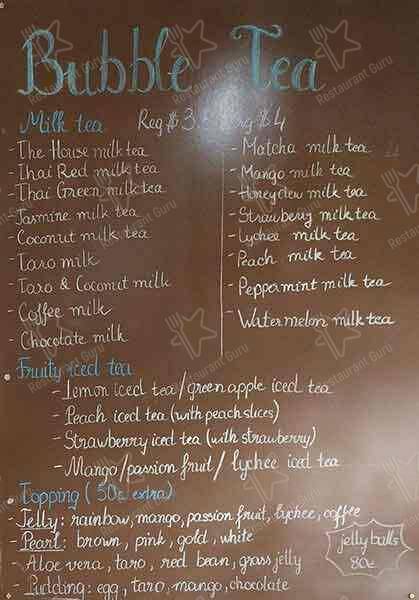 Bubble Tea
Milk tea Reg $3. $4
- The House milk tea
- Thai Red milk tea
- Thai Green milk tea
- Jasmine milk tea
- Coconut milk tea
- Taro milk
- Taro & Coconut milk
- Coffee milk
- Chocolate milk
- Matcha milk tea
- Mango milk tea
- Honeydew milk tea
- Strawberry milk tea
- Lychee milk tea
- Peach milk tea
- Peppermint milk tea
- Watermelon milk tea
Fruity iced tea
- Lemon iced tea / green apple iced tea
- Peach iced tea (with peach slices)
- Strawberry iced tea (with strawberry)
- Mango / passion fruit / lychee iced tea
Topping (50c extra)
- Jelly: rainbow, mango, passion fruit, lychee, coffee
- Pearl: brown, pink, gold, white
- Aloe vera, taro, red bean, grass jelly
- Pudding: egg, taro, mango, chocolate
jelly balls
80c
Restaurant Guru